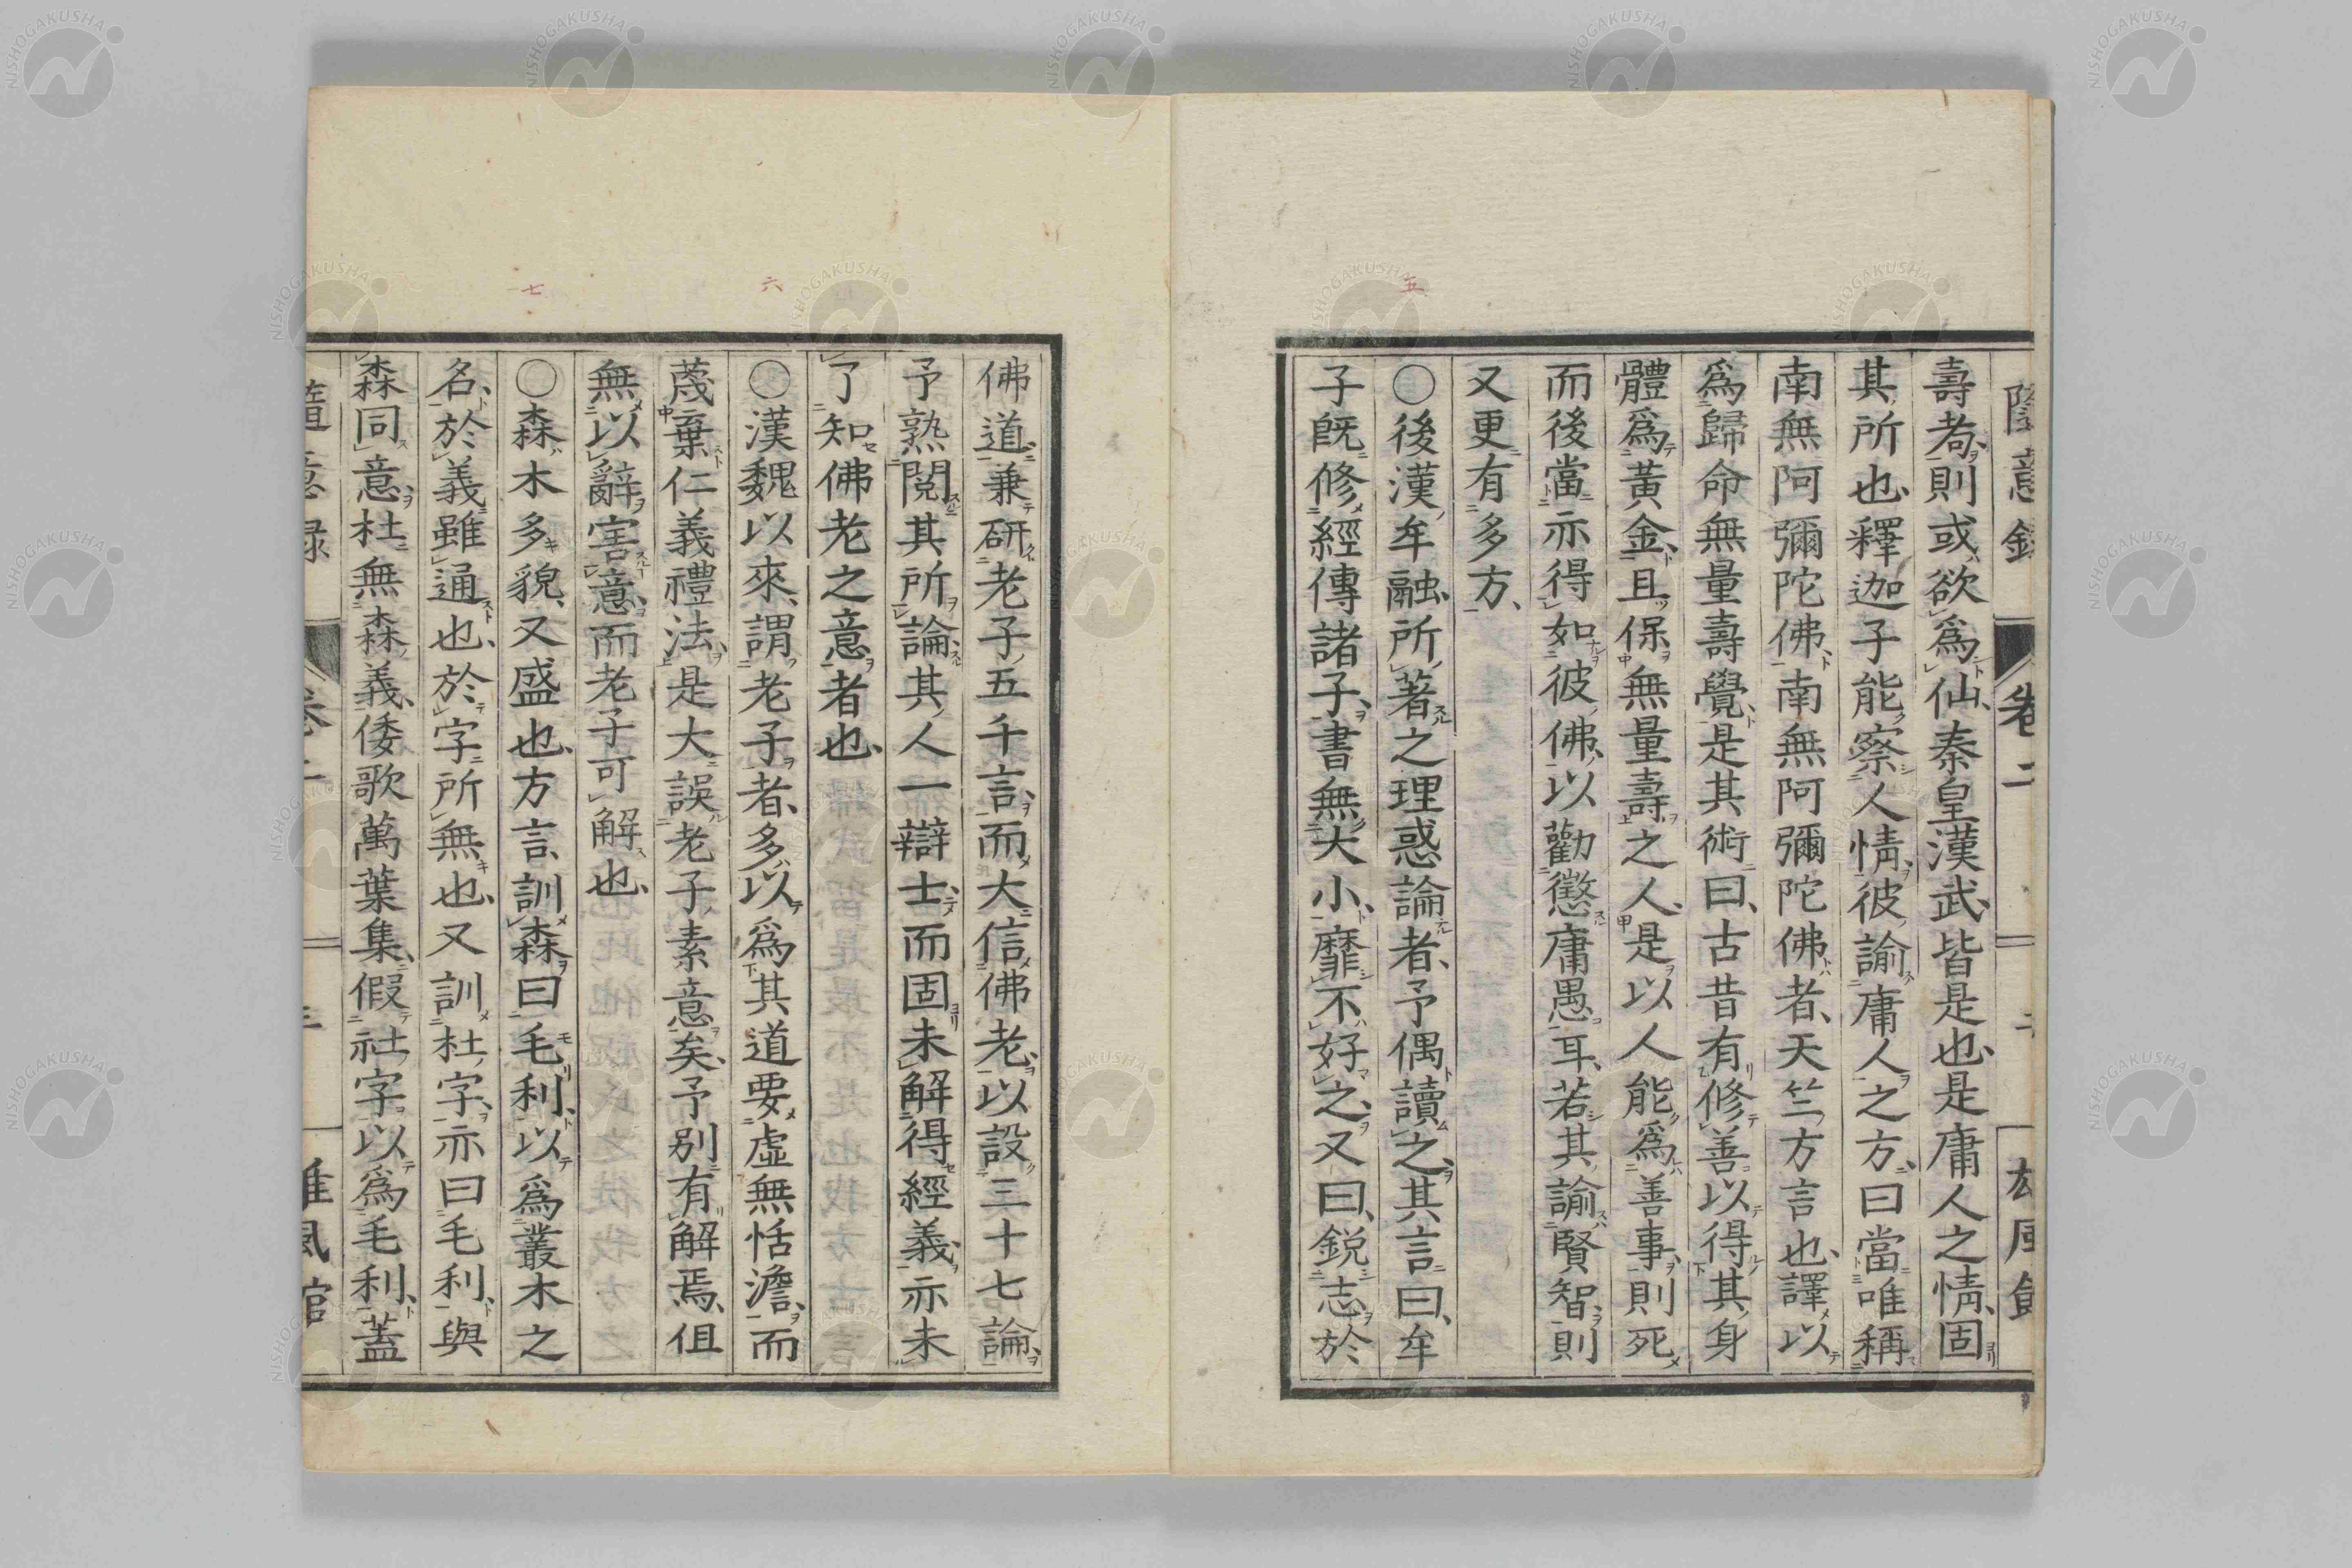 隨意錄 卷二
壽者則或欲爲仙秦皇漢武皆是也是庸人之情固
其所也釋迦子能察人情彼諭庸人之方曰當唯稱
南無阿彌陀佛南無阿彌陀佛者天竺方言也譯以
爲歸命無量壽覺是其術曰古昔有修善以得其身
體爲黃金且保無量壽之人是以人能爲善事則死
而後當亦得如彼佛以勸懲庸愚耳若其諭賢智則
又更有多方
五
〇後漢牟融所著之理惑論者予偶讀之其言曰牟
子既修經傳諸子書無大小靡不好之又曰銳志於
佛道兼研老子五千言而大信佛老以設三十七論
予熟閱其所論其人一辯士而固未解得經義亦未
了知佛老之意者也
六
〇漢魏以來謂老子者多以爲其道要虛無恬澹而
蔑棄仁義禮法是大誤老子素意矣予別有解焉但
無以辭害意而老子可解也
七
〇森木多貌又盛也方言訓森曰毛利以爲叢木之
名於義雖通也於字所無也又訓杜字亦曰毛利與
森同意杜無森義倭歌萬葉集假社字以爲毛利蓋
隨意錄 卷二
NISHOGAKUSHA